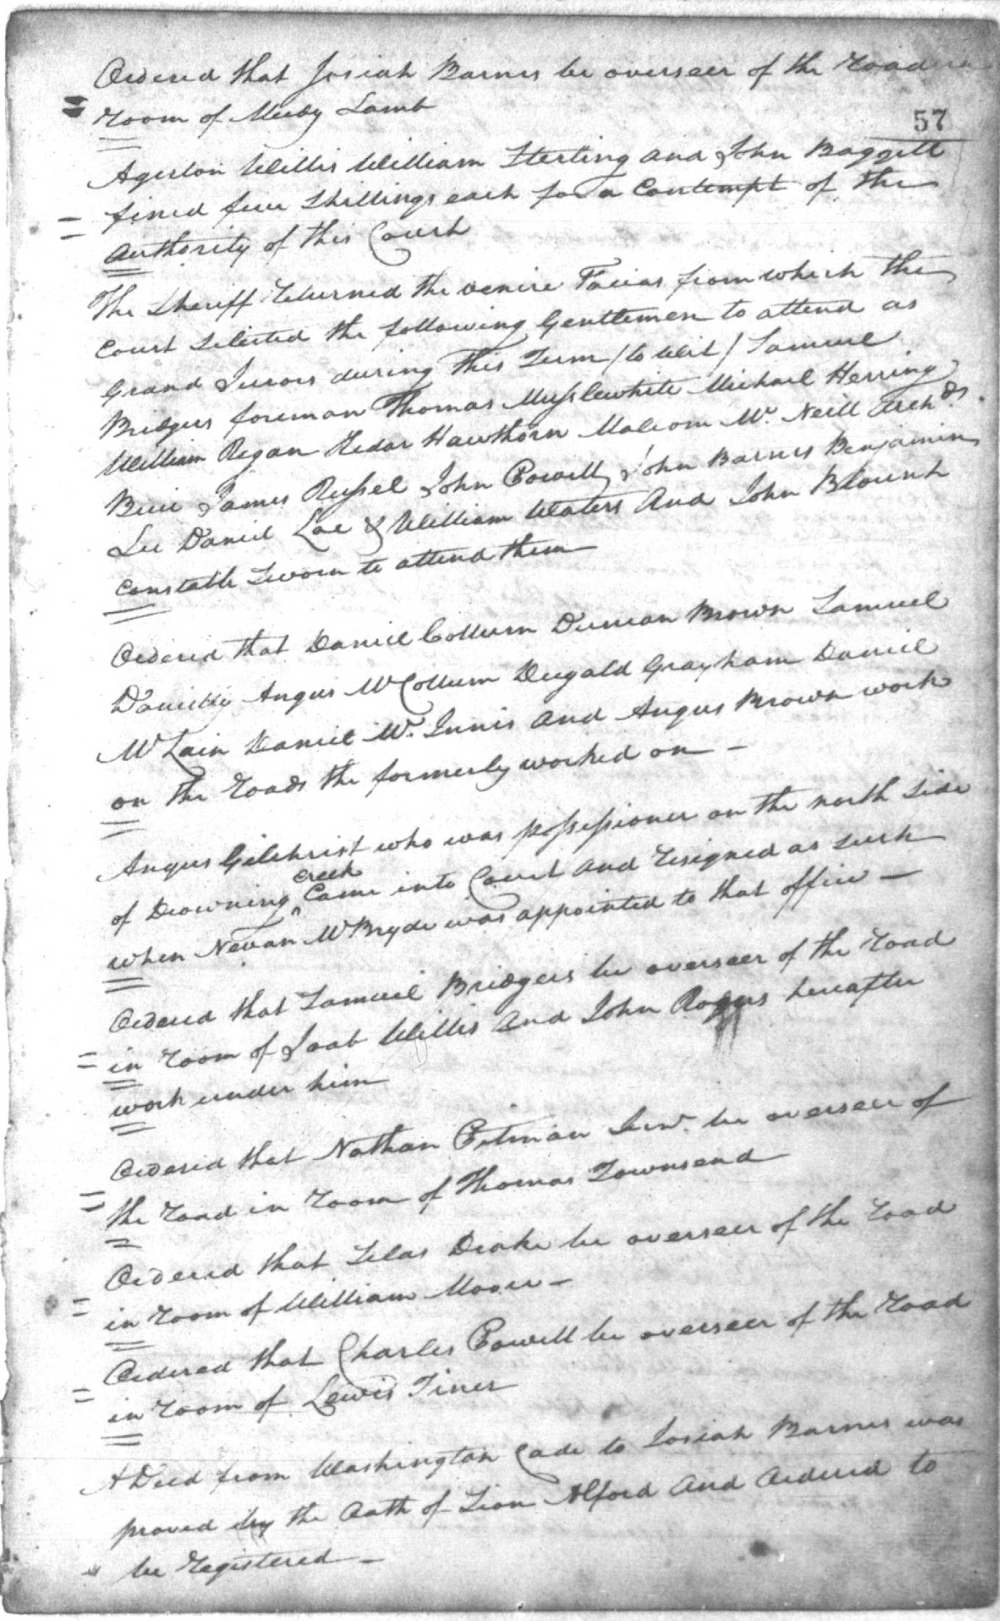 Ordered that Josiah Barnes be overseer of the Road in
room of Meedy Lamb
57
Agerton Willis William Sterling and John Baggett
fined five Shillings each for a Contempt of the
Authority of this Court
The Sheriff Returned the venire Facias from which the
Court Selected the following Gentlemen to attend as
Grand Jurors during This Term /to Wit/ Samuel
Bridgers foreman Thomas Musslewhite Michael Herring
William Regan Kedar Hawthorn Malcom Mc. Neill Archds.
Buie James Russel John Powell John Barnes Benjamin
Lee Daniel Lee & William Waters And John Blount
Constable Sworn to attend them
Ordered that Daniel Collum Duncan Brown Samuel
Angus McCollum Dugald Grayham Daniel
McLain Daniel Mc. Innis and Angus Brown work
on the Roads the formerly worked on —
Angus Gilchrist who was possessioner on the north Side
of Drowning Creek Came into Court and resigned as such
when Nevan McBryde was appointed to that office —
Ordered that Samuel Bridgers be overseer of the road
in room of Joab Willis and John Rogers hereafter
work under him
Ordered that Nathan Pitman Junr. be overseer of
the road in room of Thomas Townsend
Ordered that Silas Drake be overseer of the road
in room of William Moore —
Ordered that Charles Powell be overseer of the Road
in room of Lewis Tiner
A Deed from Washington Cade to Josiah Barnes was
proved by the Oath of Sion Alford and Ordered to
be Registered —